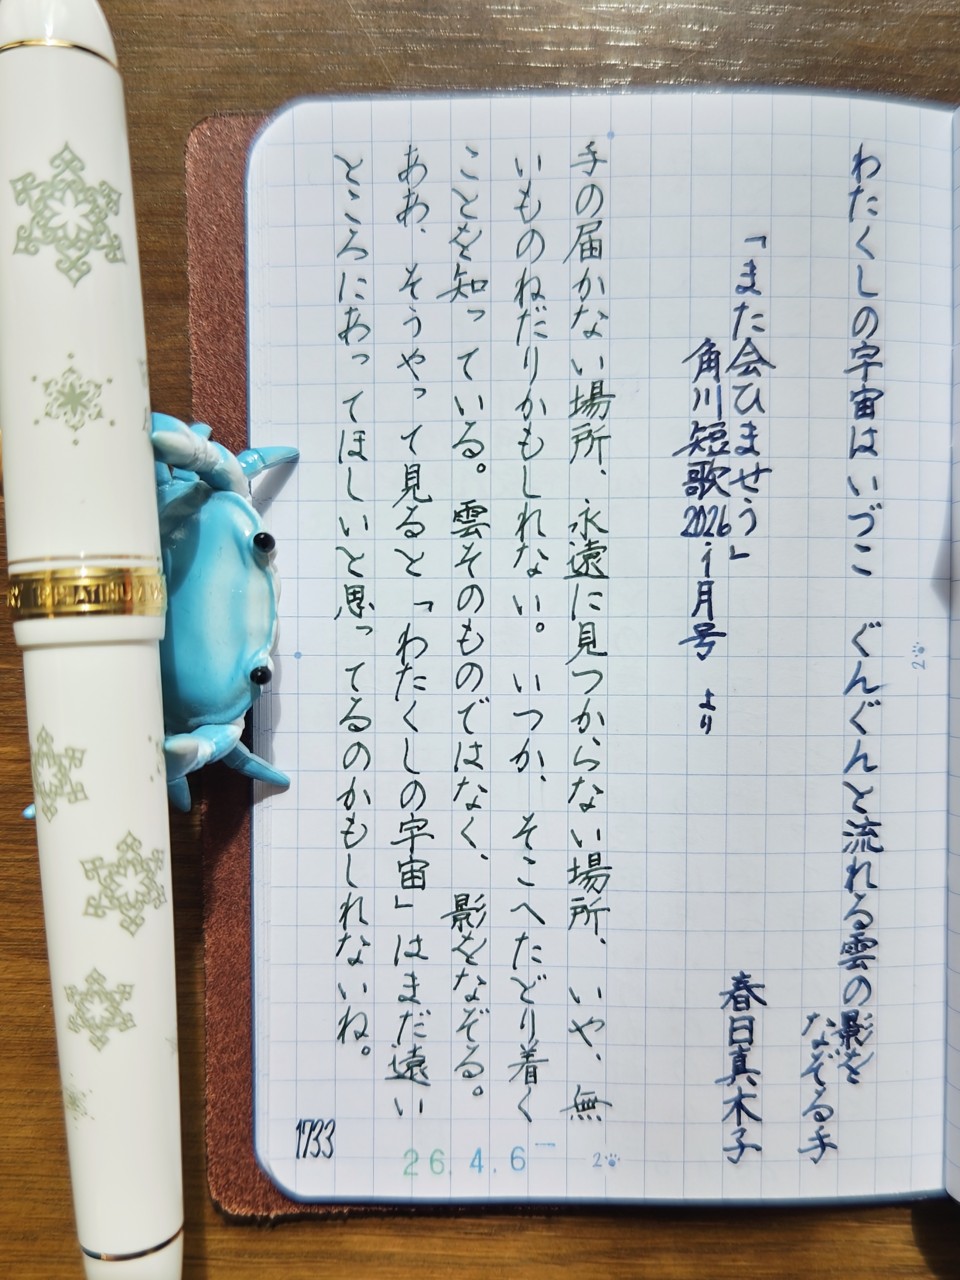 わたくしの宇宙はいづこ　ぐんぐんと流れる雲の影を
なぞる手
「また会ひませう」
春日真木子
角川短歌2026 1月号　より
手の届かない場所、永遠に見つからない場所、いや、無
いものねだりかもしれない。いつか、そこへたどり着く
ことを知っている。雲そのものではなく、影をなぞる。
ああ、そうやって見ると「わたくしの宇宙」はまだ遠い
ところにあってほしいと思ってるのかもしれないね。
1733
26.4.6
2
2
PLATINUM